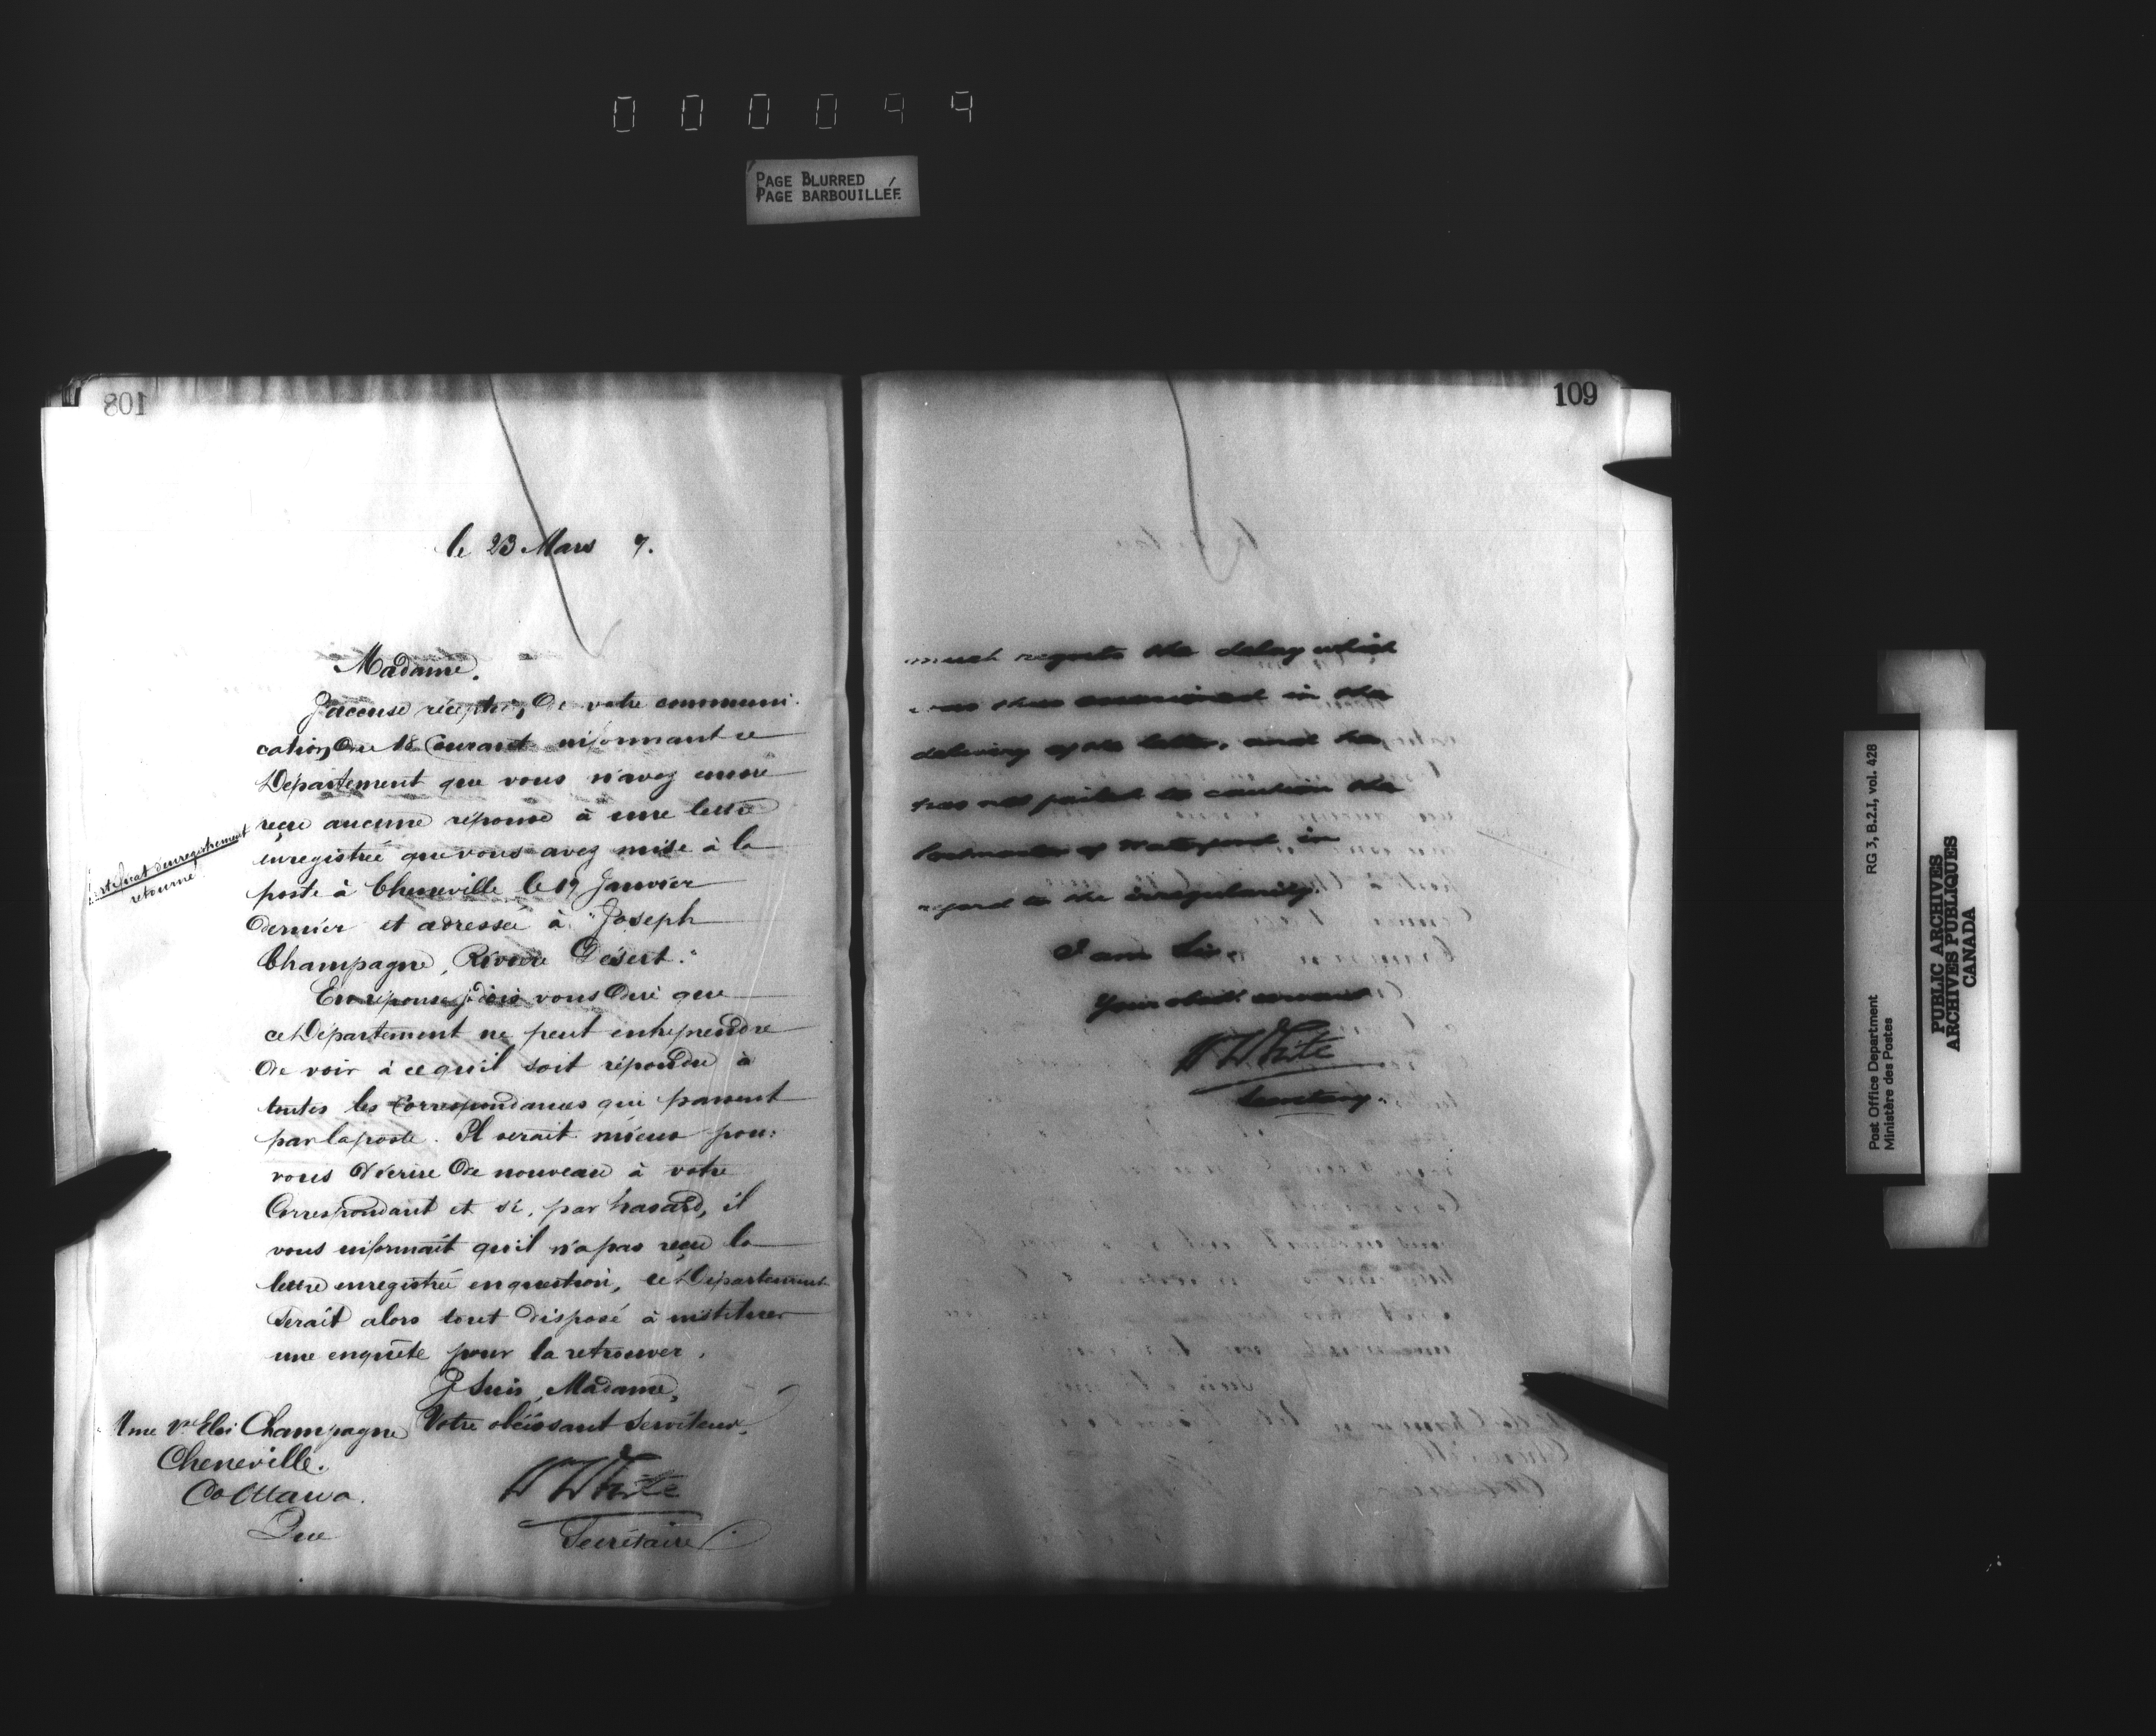 000099
PAGE BLURRED
PAGE BARBOUILLÉE
108
le 23 Mars 7.
Madame,
J'accuse réception, de votre communi-
cation, du 18 Courant informant ce
Département que vous n'avez encore
reçu aucune réponse à une lettre
enregistrée que vous avez mise à la
poste à Cheneville le 19 Janvier
dernier et adressée à "Joseph
Champagne, Rivière Désert."
certificat d'enregistrement
retourné
En réponse je dois vous dire que
ce Département ne peut entreprendre
de voir à ce qu'il soit répondu à
toutes les Correspondances que passent
par la poste. Il serait mieux pour
vous d'écrire de nouveau à votre
Correspondant et si, par hasard, il
vous informait qu'il n'a pas reçu la
lettre enregistrée en question, ce Département
serait alors tout disposé à instituer
une enquête pour la retrouver.
Je Suis, Madame,
Votre obéissant Serviteur,
W White
Secrétaire
Mme Ve Eloi Champagne
Cheneville.
Co Ottawa.
Que
109
much regrets the delay which
was thus occasioned in the
delivery of the letter, and he
has not failed to caution the
Postmaster of Waterford in
regard to the irregularity.
I am Sir,
Your obedt servant
W White
Secretary.
Post Office Department
Ministère des Postes
RG 3, B.2.I, vol. 428
PUBLIC ARCHIVES
ARCHIVES PUBLIQUES
CANADA